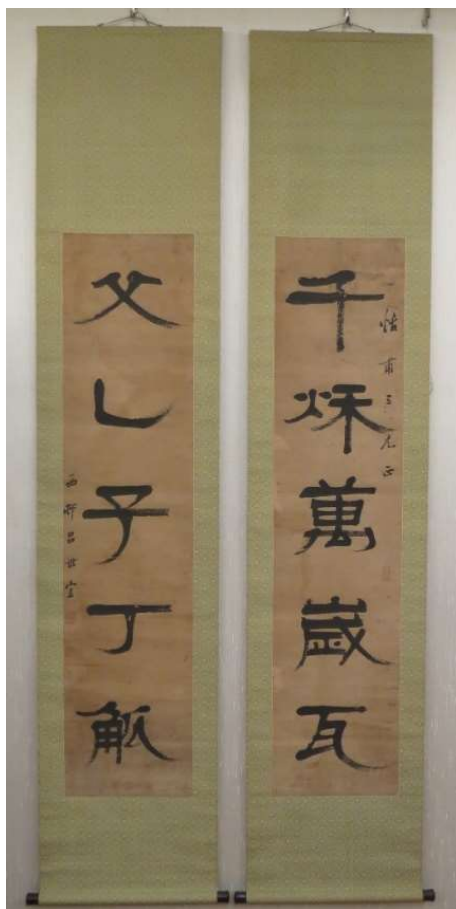 甫三兄正
千秌萬歲瓦
父乙子丁觚
西邨呂世宜